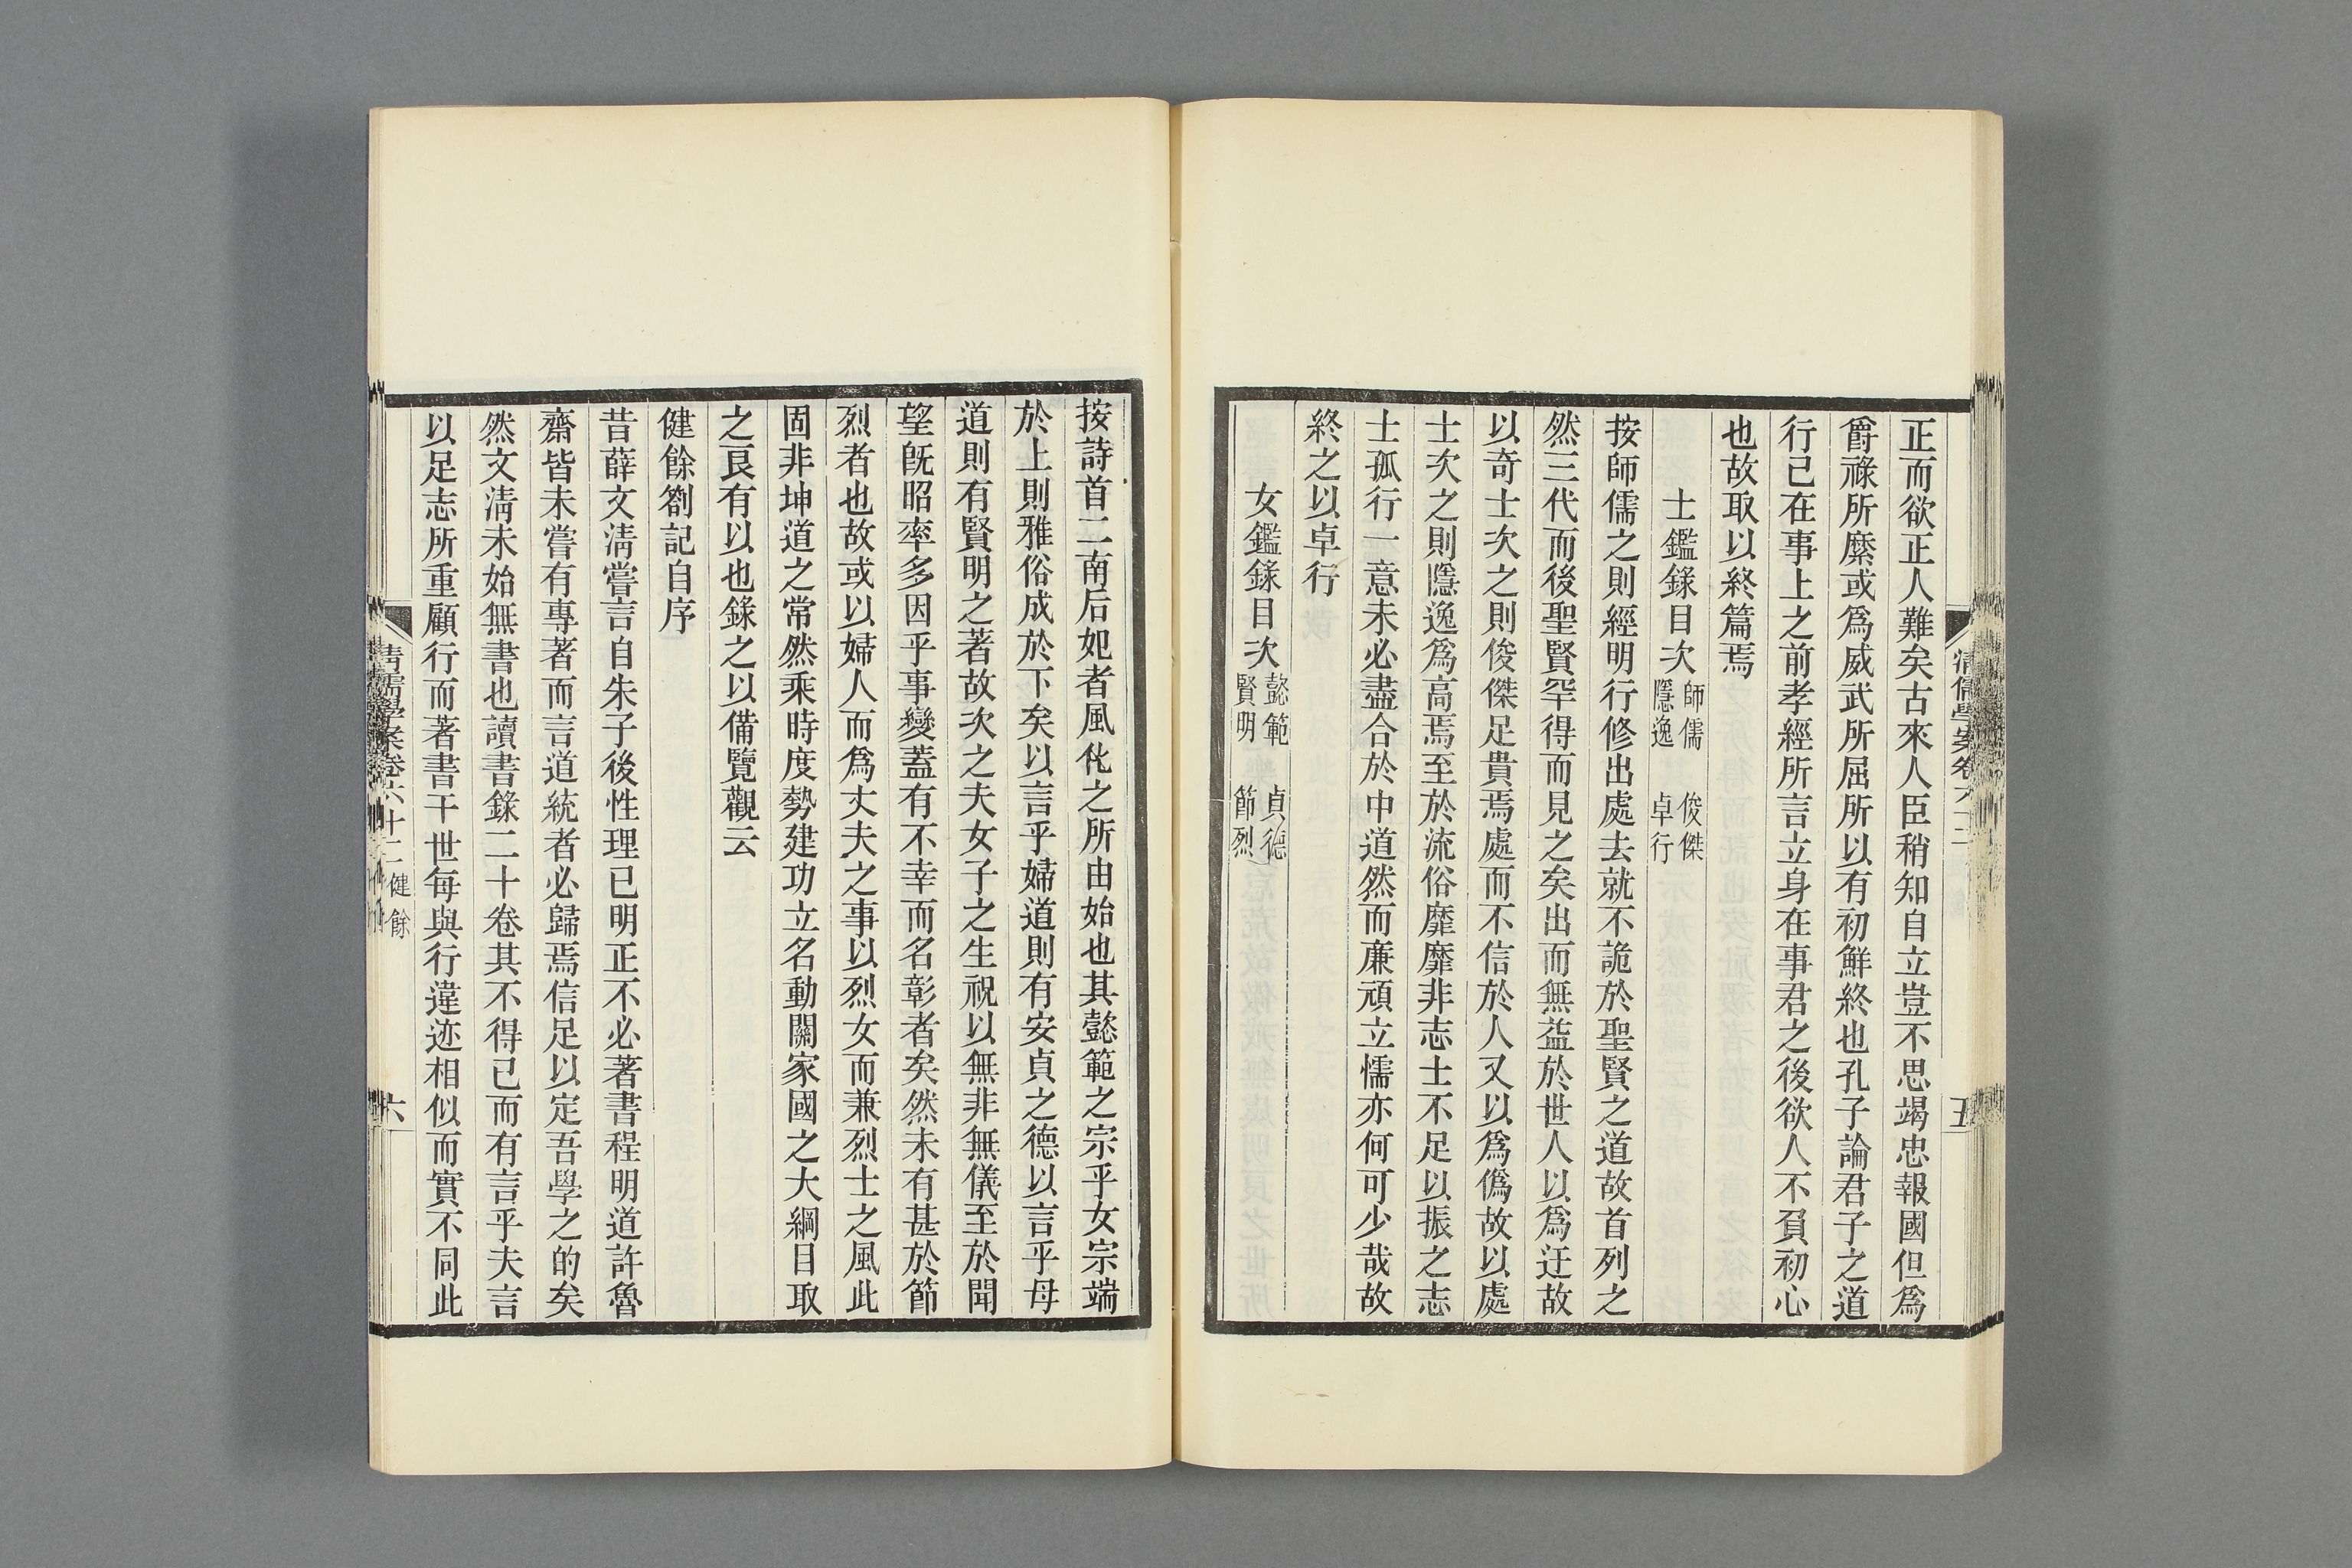 正而欲正人難矣古來人臣稍知自立豈不思竭忠報國但爲
爵祿所縻或爲威武所屈所以有初鮮終也孔子論君子之道
行己在事上之前孝經所言立身在事君之後欲人不負初心
也故取以終篇焉
士鑑錄目次 師儒 俊傑 隱逸 卓行
按師儒之則經明行修出處去就不詭於聖賢之道故首列之
然三代而後聖賢罕得而見之矣出而無益於世人以爲迂故
以奇士次之則俊傑足貴焉處而不信於人又以爲僞故以處
士次之則隱逸爲高焉至於流俗靡靡非志士不足以振之志
士孤行一意未必盡合於中道然而廉頑立懦亦何可少哉故
終之以卓行
女鑑錄目次 懿範 貞德 賢明 節烈
按詩首二南后妃者風化之所由始也其懿範之宗乎女宗端
於上則雅俗成於下矣以言乎婦道則有安貞之德以言乎母
道則有賢明之著故次之夫女子之生祝以無非無儀至於聞
望旣昭率多因乎事變蓋有不幸而名彰者矣然未有甚於節
烈者也故或以婦人而爲丈夫之事以烈女而兼烈士之風此
固非坤道之常然乘時度勢建功立名動關家國之大綱目取
之良有以也錄之以備覽觀云
健餘劄記自序
昔薛文淸嘗言自朱子後性理已明正不必著書程明道許魯
齋皆未嘗有專著而言道統者必歸焉信足以定吾學之的矣
然文淸未始無書也讀書錄二十卷其不得已而有言乎夫言
以足志所重顧行而著書干世每與行違迹相似而實不同此
清儒學案卷六十二 健餘
六